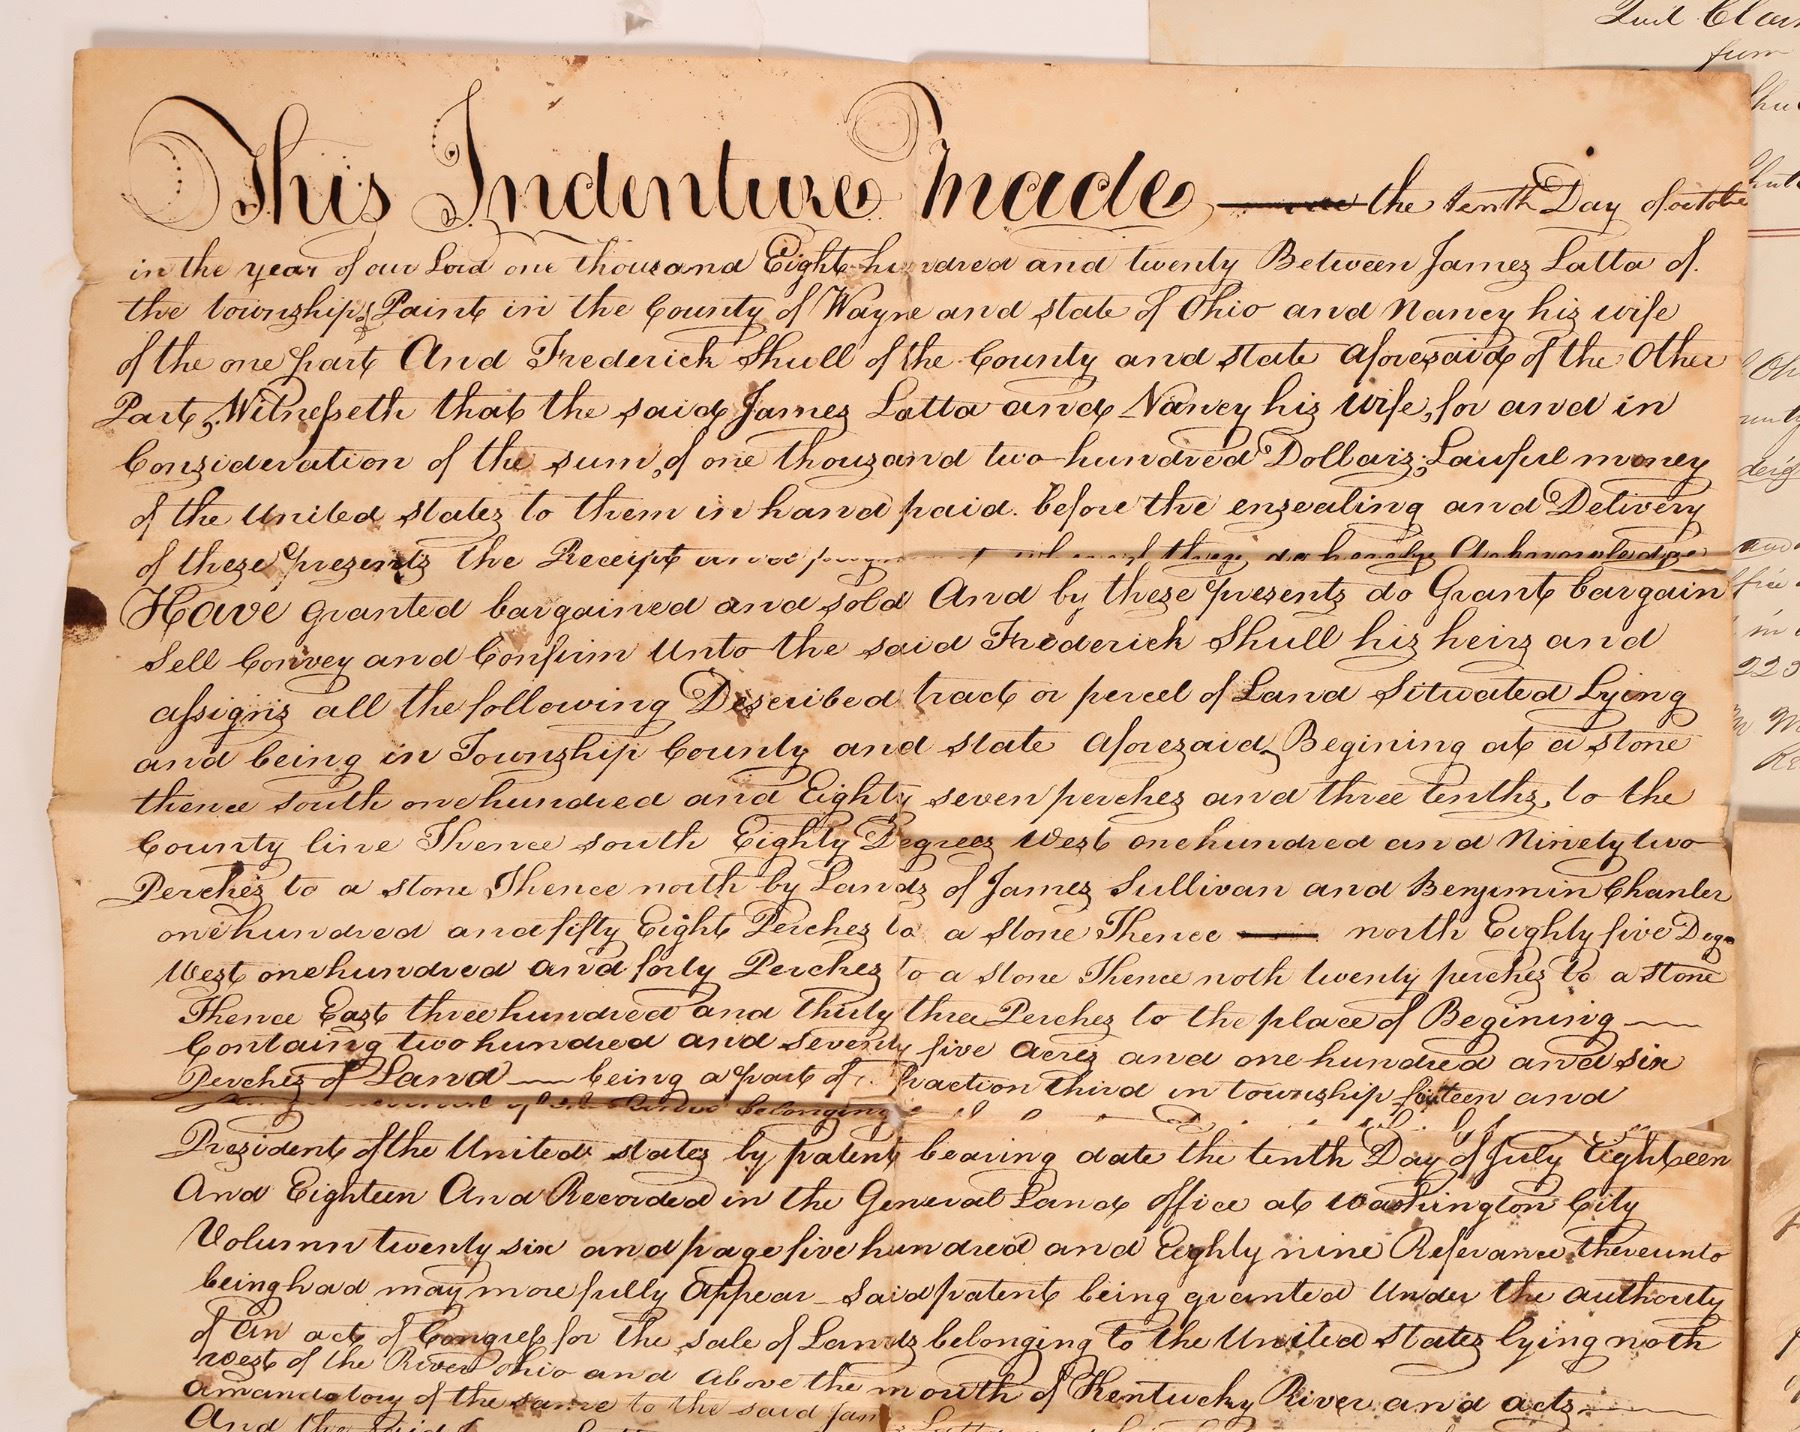 This Indenture Made the tenth Day of octobe
in the year of our Lord one thousand Eight hundred and twenty Between James Latta of
the township of Paint in the County of Wayne and state of Ohio and Nancy his wife
of the one part And Frederick Shull of the County and state aforesaid of the Other
Part, Witnesseth that the said James Latta and Nancy his wife, for and in
Consideration of the sum of one thousand two hundred Dollars, Lauful money
of the United states to them in hand paid. before the ensealing and Delivery
of these presents the Receipt whereof they do hereby Acknowledge
Have granted bargained and sold And by these presents do Grant bargain
Sell Convey and Confirm Unto the said Frederick Shull his heirs and
assigns all the following Described tract or percel of Land Situated Lying
and being in Township County and state aforesaid Begining at a stone
thence south one hundred and Eighty seven perches and three tenths, to the
County line Thence south Eighty Degrees West one hundred and Ninety two
Perches to a stone Thence north by Lands of James Sullivan and Benjamin Chanler
one hundred and fifty Eight Perches to a stone Thence north Eighty five Deg
West one hundred and forty Perches to a stone Thence noth twenty perches to a stone
Thence East three hundred and thirty three Perches to the place of Begining
Containg two hundred and seventy five Acres and one hundred and six
Perches of Land being a part of fraction third in township fifteen and
belonging
President of the United states by patent bearing date the tenth Day of July Eighteen
And Eighteen And Recorded in the General Land office at Washington City
Volumn twenty six and page five hundred and Eighty nine Referance thereunto
being had may more fully Appear said patent being granted Under the authority
of an act of Congress for the sale of Lands belonging to the United states lying noth
west of the River Ohio and Above the mouth of Kentucky River and acts
amandatory of the same to the said Jam
And the said
Quit Clai
from
Shu
223